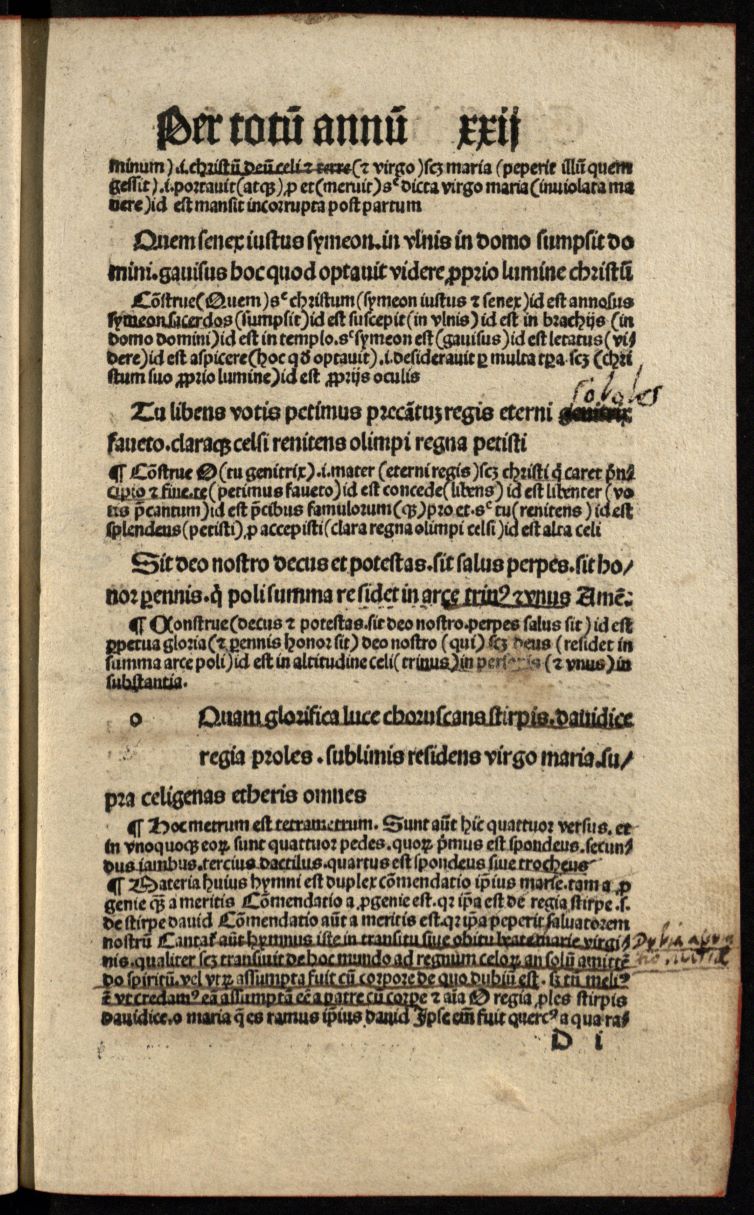 Per totū annū xxij
minum).i.christū deū celi ⁊ terre(⁊ virgo)scꝫ maria (peperit illū quem
gessit).i.portauit(atqꝫ)ꝓ et(meruit)sᶜ dicta virgo maria(inuiolata ma
dere)id est mansit incorrupta post partum
Quem senex iustus symeon.in vlnis in domo sumpsit do
mini.gauisus hoc quod optauit videre ꝓprio lumine christū
Cōstrue(Quem)sᶜ christum(symeon iustus ⁊ senex)id est annosus
symeon sacerdos(sumpsit)id est suscepit(in vlnis)id est in brachijs (in
domo domini)id est in templo.sᶜ symeon est(gauisus)id est letatus (vi⸗
dere)id est aspicere(hoc qd̄ optauit).i.desiderauit ꝑ multa tꝑa.scꝫ (chri
stum suo ꝓprio lumine)id est ꝓprijs oculis
soboles
Tu libens votis petimus precātuꝫ regis eterni genitrix
faueto.claraqꝫ celsi renitens olimpi regna petisti
¶ Cōstrue O(tu genitrix).i.mater (eterni regis)scꝫ christi q̄ caret p̄n⸗
cipio ⁊ fine.te(petimus faueto)id est concede(libens) id est libenter (vo
tis p̄cantum)id est p̄cibus famulorum(qꝫ)pro et.sᶜ tu(renitens)id est
splendens(petisti).ꝓ accepisti(clara regna olimpi celsi)id est alta celi
Sit deo nostro decus et potestas.sit salus perpes.sit ho/
nor ꝑennis.q̄ poli summa residet in arce trinꝰ ⁊ vnus Amē:
¶ Construe(decus ⁊ potestas.sit deo nostro.perpes salus sit)id est
ꝑpetua gloria(⁊ ꝑennis honor sit) deo nostro (qui) scꝫ deus (residet in
summa arce poli)id est in altitudine celi(trinus)in personis (⁊ vnus)in
substantia.
o Quam glorifica luce choruscans stirpis.dauidice
regia proles.sublimis residens virgo maria.su/
pra celigenas etheris omnes
¶ Hoc metrum est tetrametrum. Sunt aūt hic quattuor versus. et
in vnoquoqꝫ eoꝝ sunt quattuor pedes.quoꝝ p̄mus est spondeus.secun⸗
dus iambus.tercius dactilus.quartus est spondeus siue trocheus
¶ Materia huius hymni est duplex cōmendatio ip̄ius marie.tam a ꝓ
genie qꝫ a meritis Cōmendatio a ꝓgenie est.qr ip̄a est de regia stirpe.s.
de stirpe dauid Cōmendatio aūt a meritis est.qr ip̄a peperit saluatorem
nostrū Cantaf aūt hymnus iste in transitu siue obitu beate marie virgi⸗
nis.qualiter scꝫ transiuit de hoc mundo ad regnum celoꝝ an solū amittē
do spiritū.vel vtꝝ assumpta fuit cū corpore de quo dubiū est. sꝫ tn̄ meliꝰ
ē vt credamꝰ eā assumptā eē a patre cū corpe ⁊ aīa O regia ꝓles stirpis
dauidice.o maria q̄ es ramus ip̄ius dauid Ipse em̄ fuit quercꝰ a qua ra⸗
D i